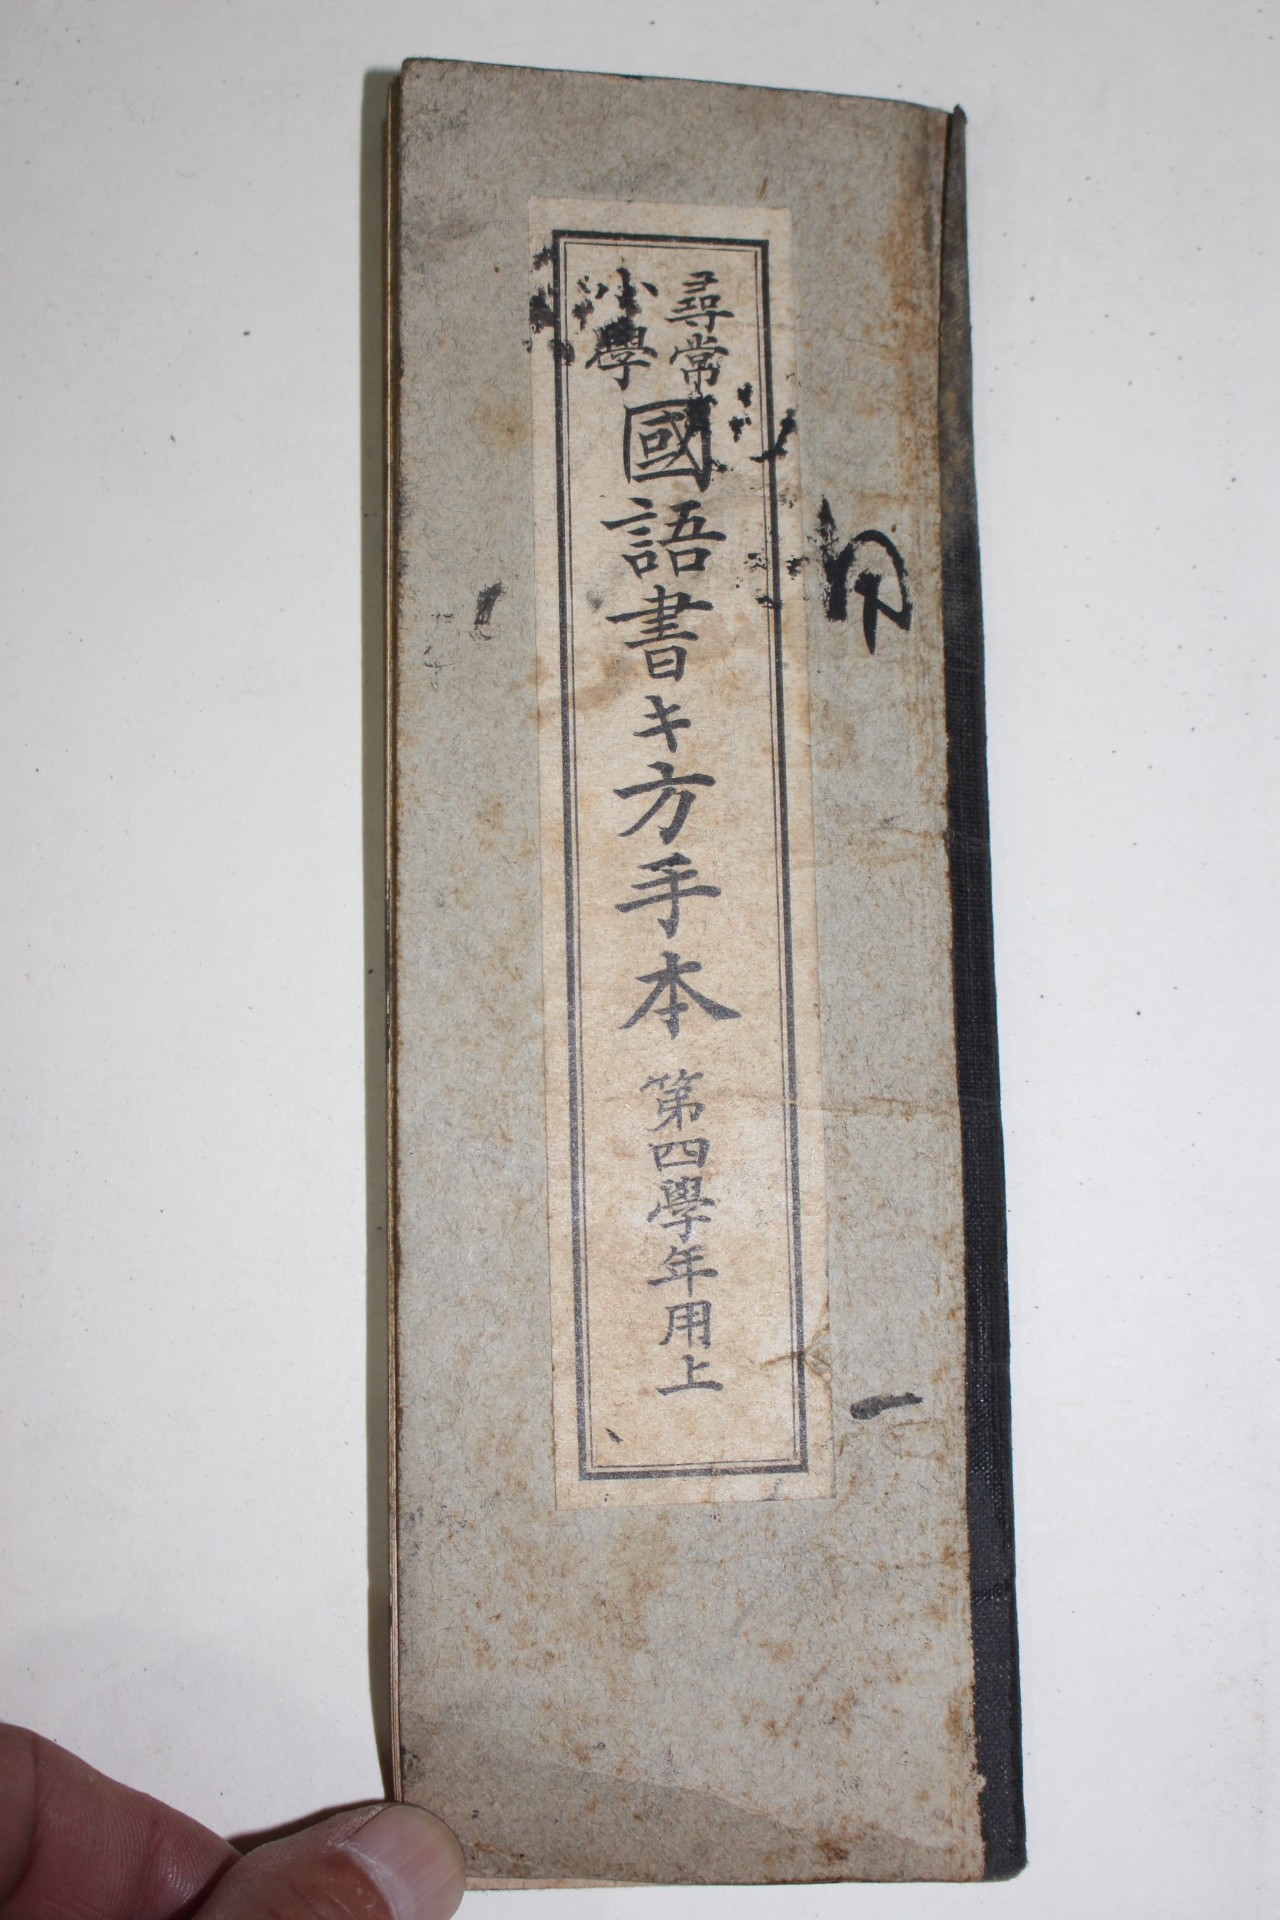 尋常
小學
國語書キ方手本 第四學年用上